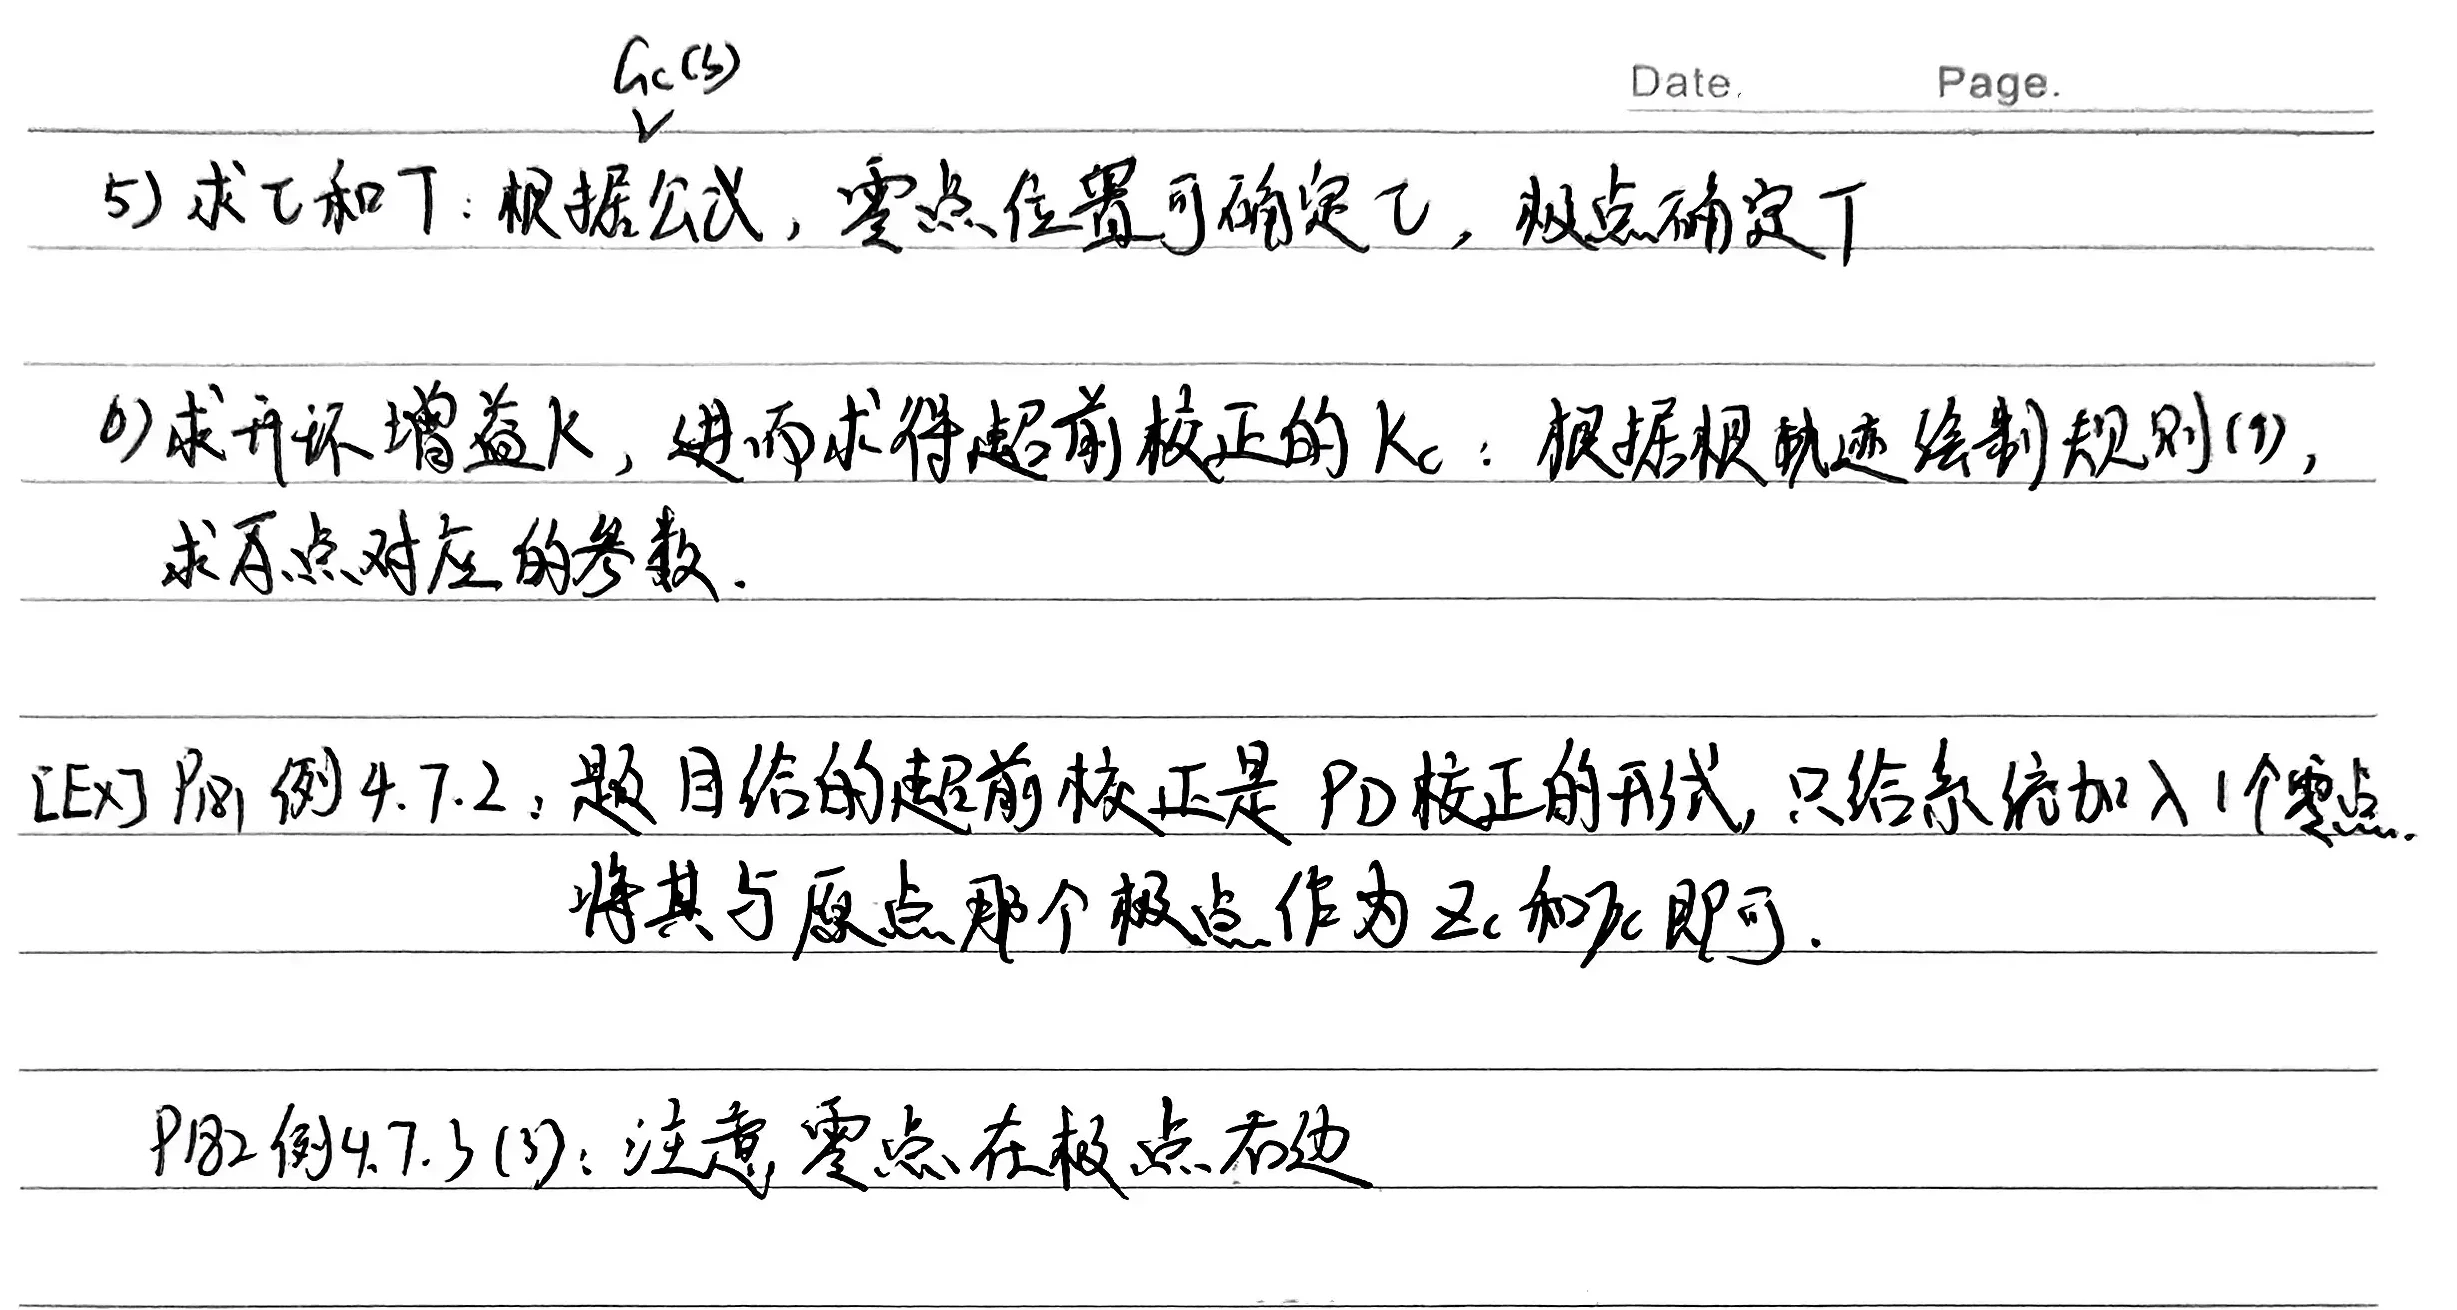 Date. Page.
Gc(s)
5) 求τ和T：根据公式，零点位置可确定τ，极点确定T
6) 求开环增益K，进而求得超前校正的Kc：根据根轨迹绘制规则(9)，
求百点对应的参数.
[Ex] P181 例4.7.2：题目给的超前校正是PD校正的形式，只给系统加入1个零点.
将其与原点那个极点作为Zc和Pc即可.
P182 例4.7.3(3)：注意零点在极点右边